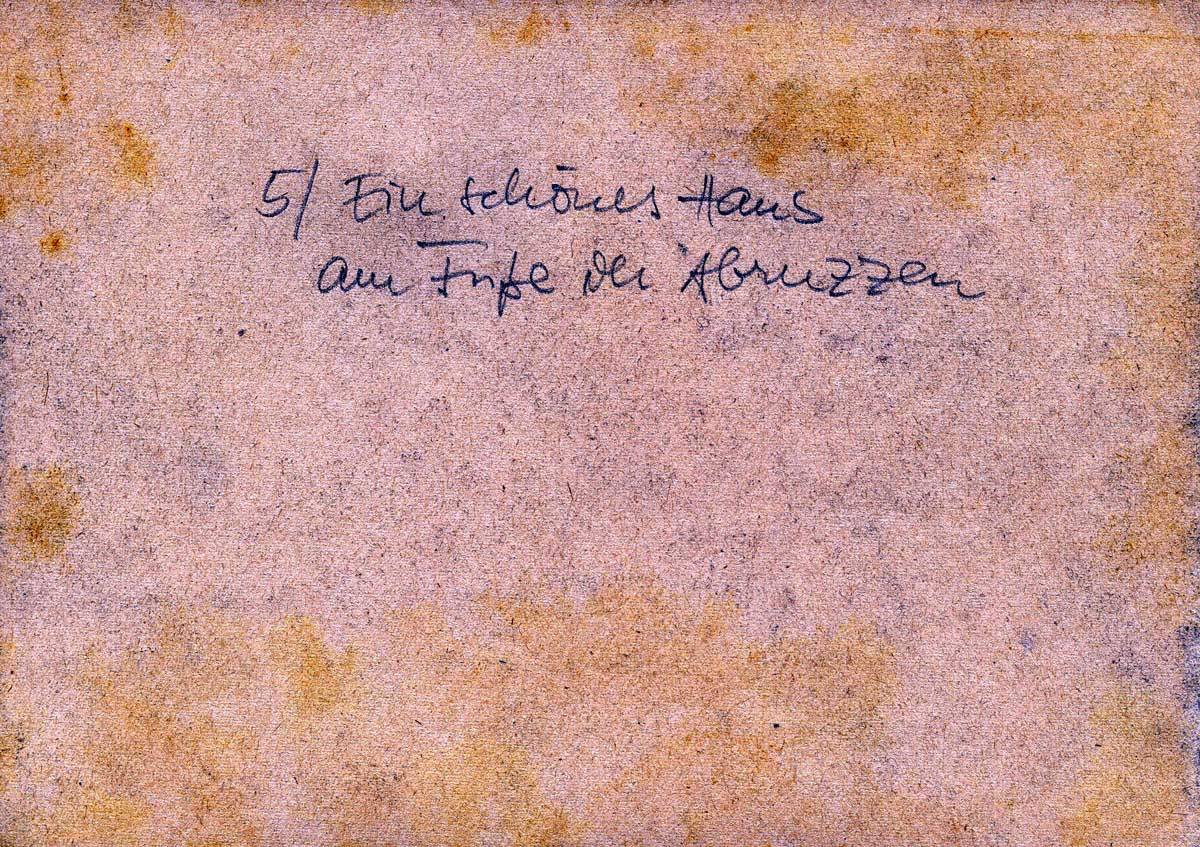 5/ Ein schönes Haus
am Fuße der Abruzzen